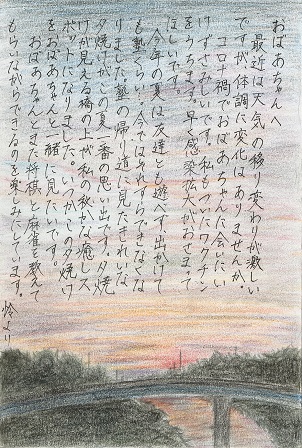 おばあちゃんへ
最近は天気の移り変わりが激しい
ですが、体調に変化はありませんか。
コロナ禍でおばあちゃんに会いに
行けずさみしいです。私もついにワクチン
をうちます。早く感染拡大がおさまって
ほしいです。
今年の夏は友達とも遊べず、出かけて
も塾くらい。今ではそれすらできなくな
りました。塾の帰り道に見たきれいな
夕焼けがこの夏一番の思い出です。夕焼
けが見える橋の上が私の秘かな癒しス
ポットになりました。いつかこの夕焼け
をおばあちゃんと一緒に見たいです。
おばあちゃんとまた将棋と麻雀を教えて
もらいながらできるのを楽しみにしています。
怜より